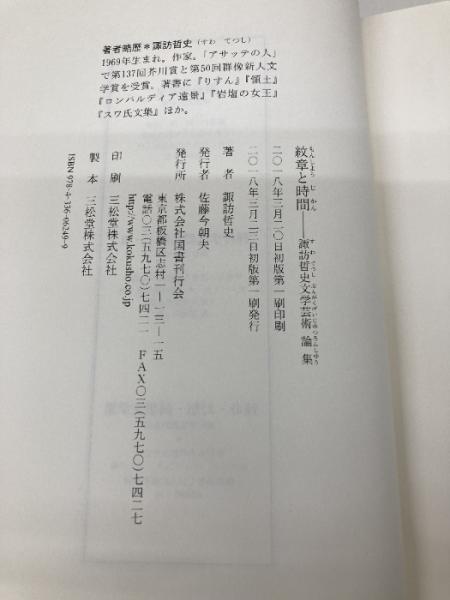 著者略歴*諏訪哲史(すわ てつし)
1969年生まれ。作家。「アサッテの人」
で第137回芥川賞と第50回群像新人文
学賞を受賞。著書に『りすん』『領土』
『ロンバルディア遠景』『岩塩の女王』
『スワ氏文集』ほか。
もんしょう じかん
紋章と時間――諏訪哲史文学芸術論集
すわてつしぶんがくげいじゅつろんしゅう
二〇一八年三月二〇日初版第一刷印刷
二〇一八年三月二三日初版第一刷発行
著者 諏訪哲史
発行者 佐藤今朝夫
発行所 株式会社国書刊行会
東京都板橋区志村一―一三―一五
電話〇三(五九七〇)七四二一 FAX〇三(五九七〇)七四二七
http://www.kokusho.co.jp
印刷 三松堂株式会社
製本 三松堂株式会社
ISBN 978-4-336-06249-9